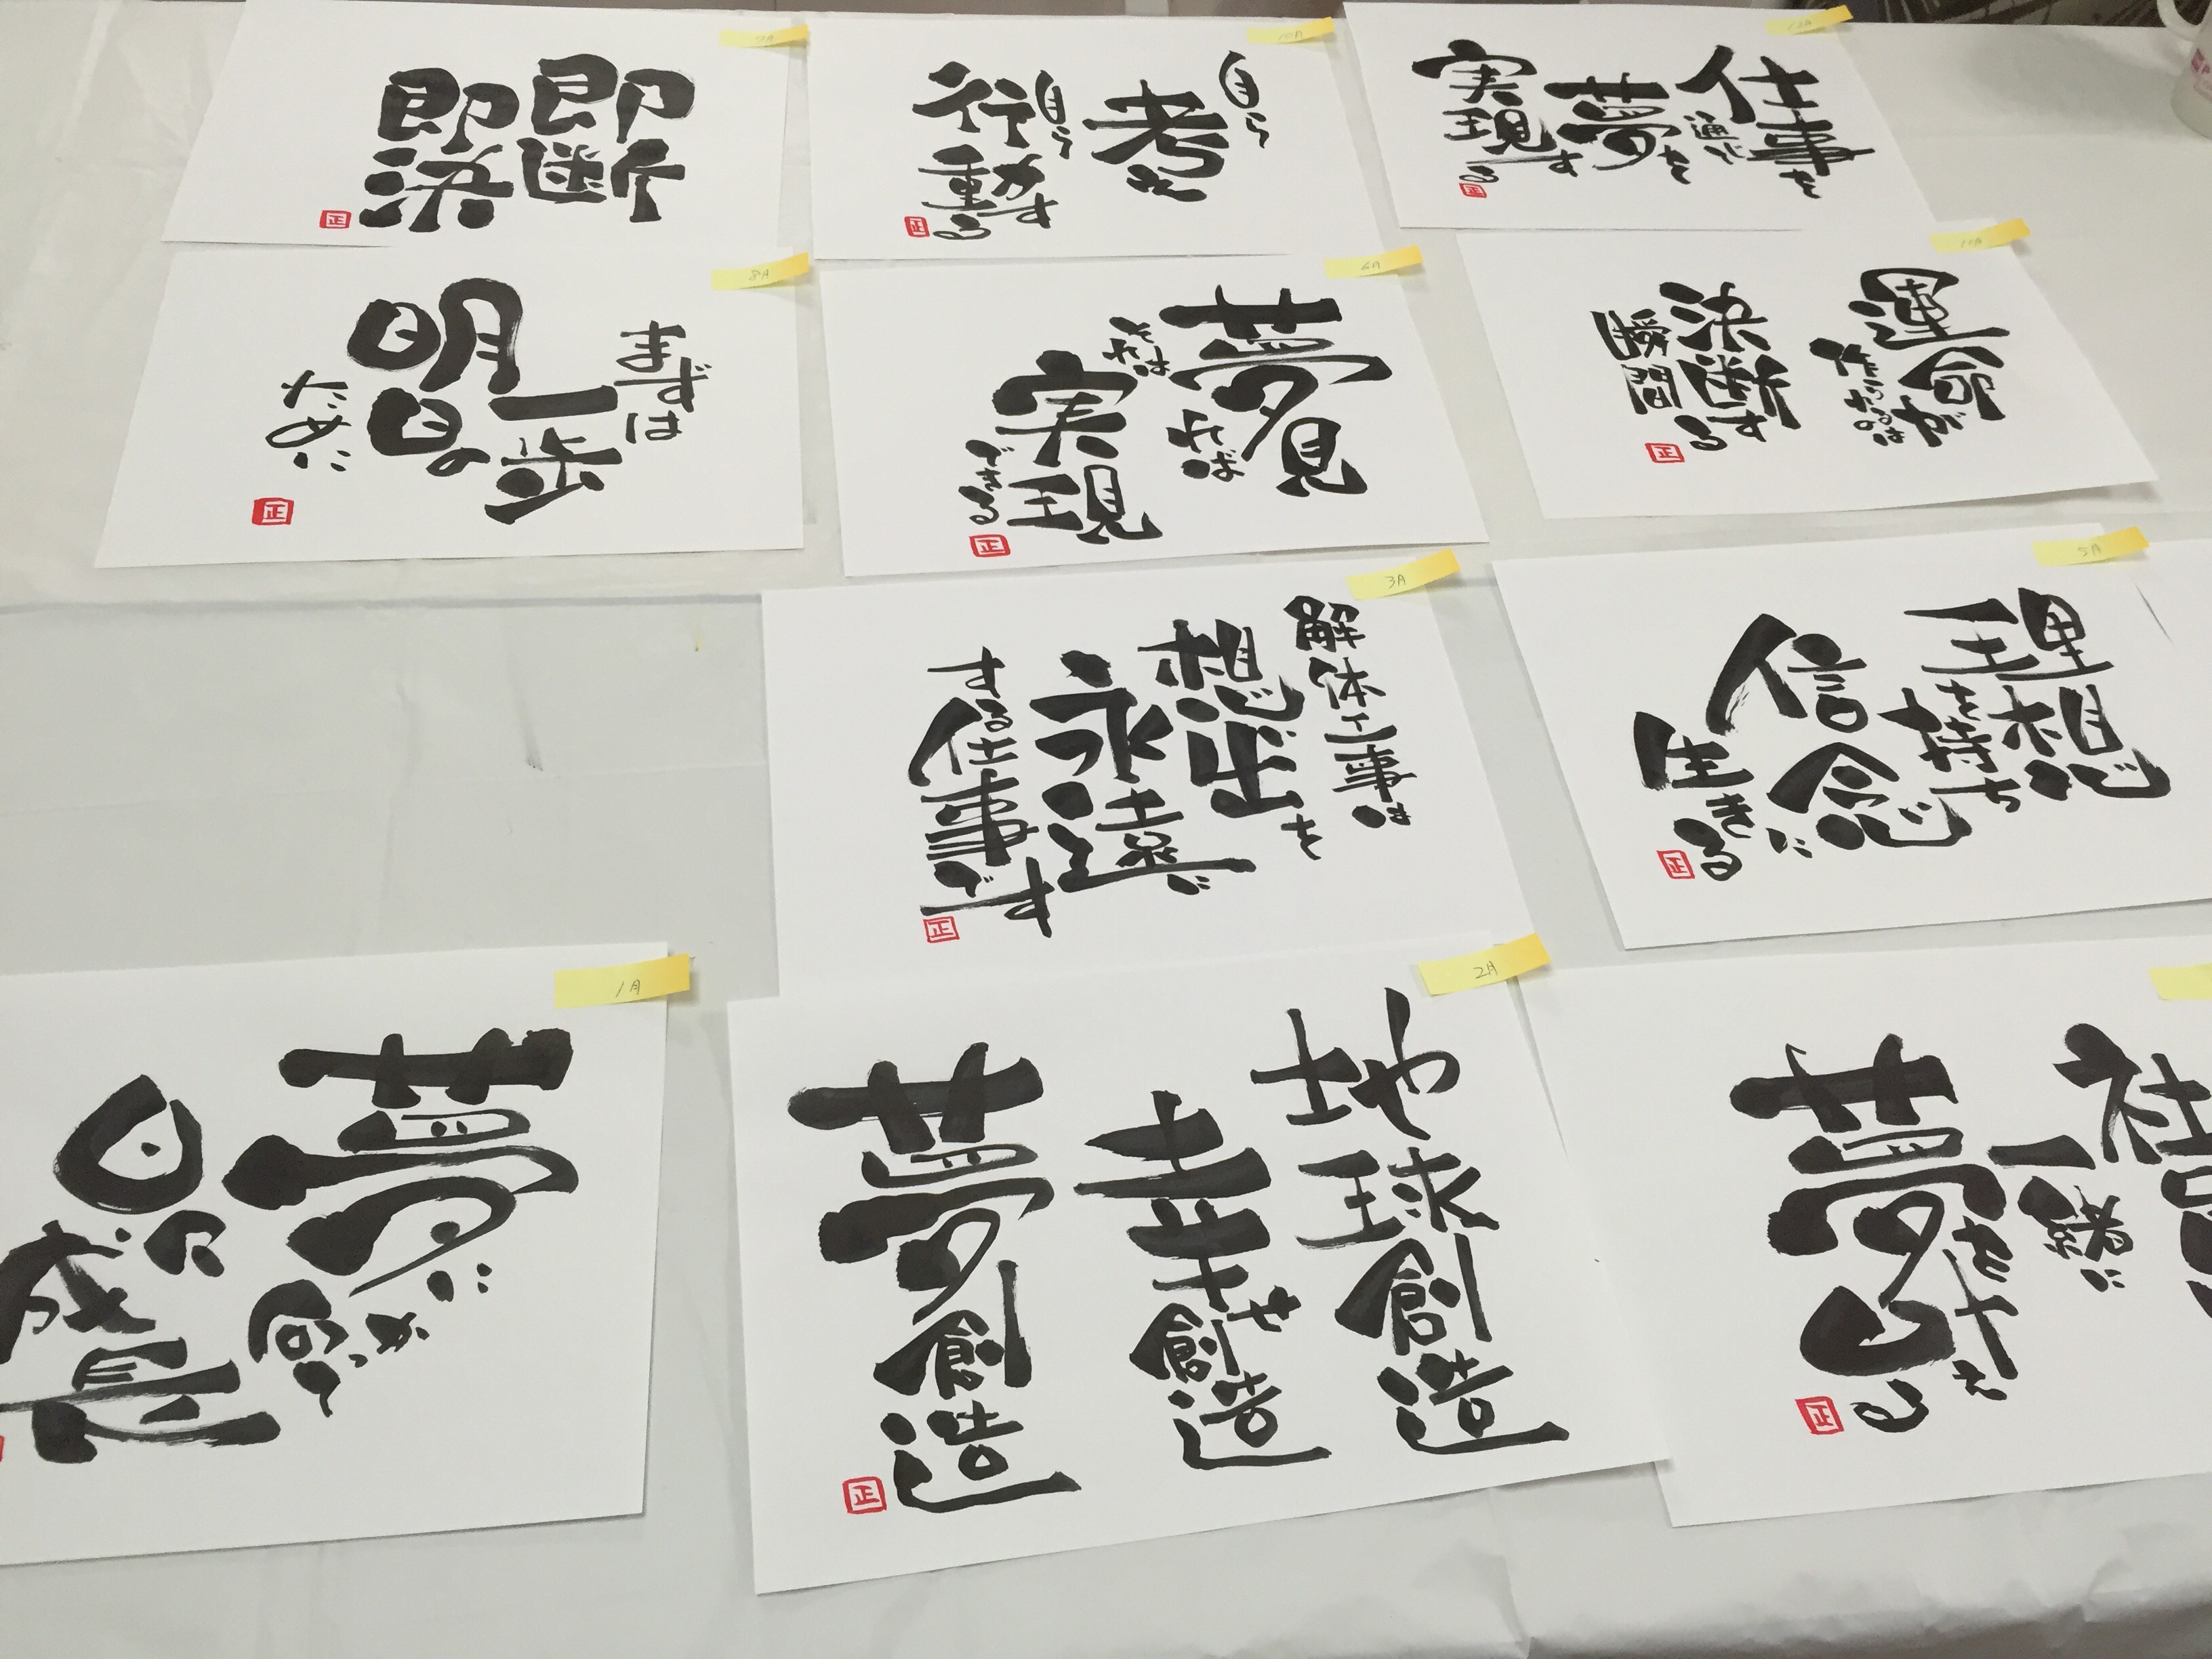 即断
即決
正
10月
自ら
考え
自ら
行動する
正
12月
仕事を
通じて
夢を
実現する
正
8月
まずは
一歩
明日の
ために
正
6月
夢見
れば
それは
実現
できる
正
11月
運命が
作られるのは
決断する
瞬間
正
3月
解体工事は
想出を
永遠に
する仕事です
正
5月
理想
を持ち
信念に
生きる
正
1月
夢に
向かって
日々
成長
2月
地球創造
幸せ創造
夢創造
正
社
一緒に
夢を
叶える
正